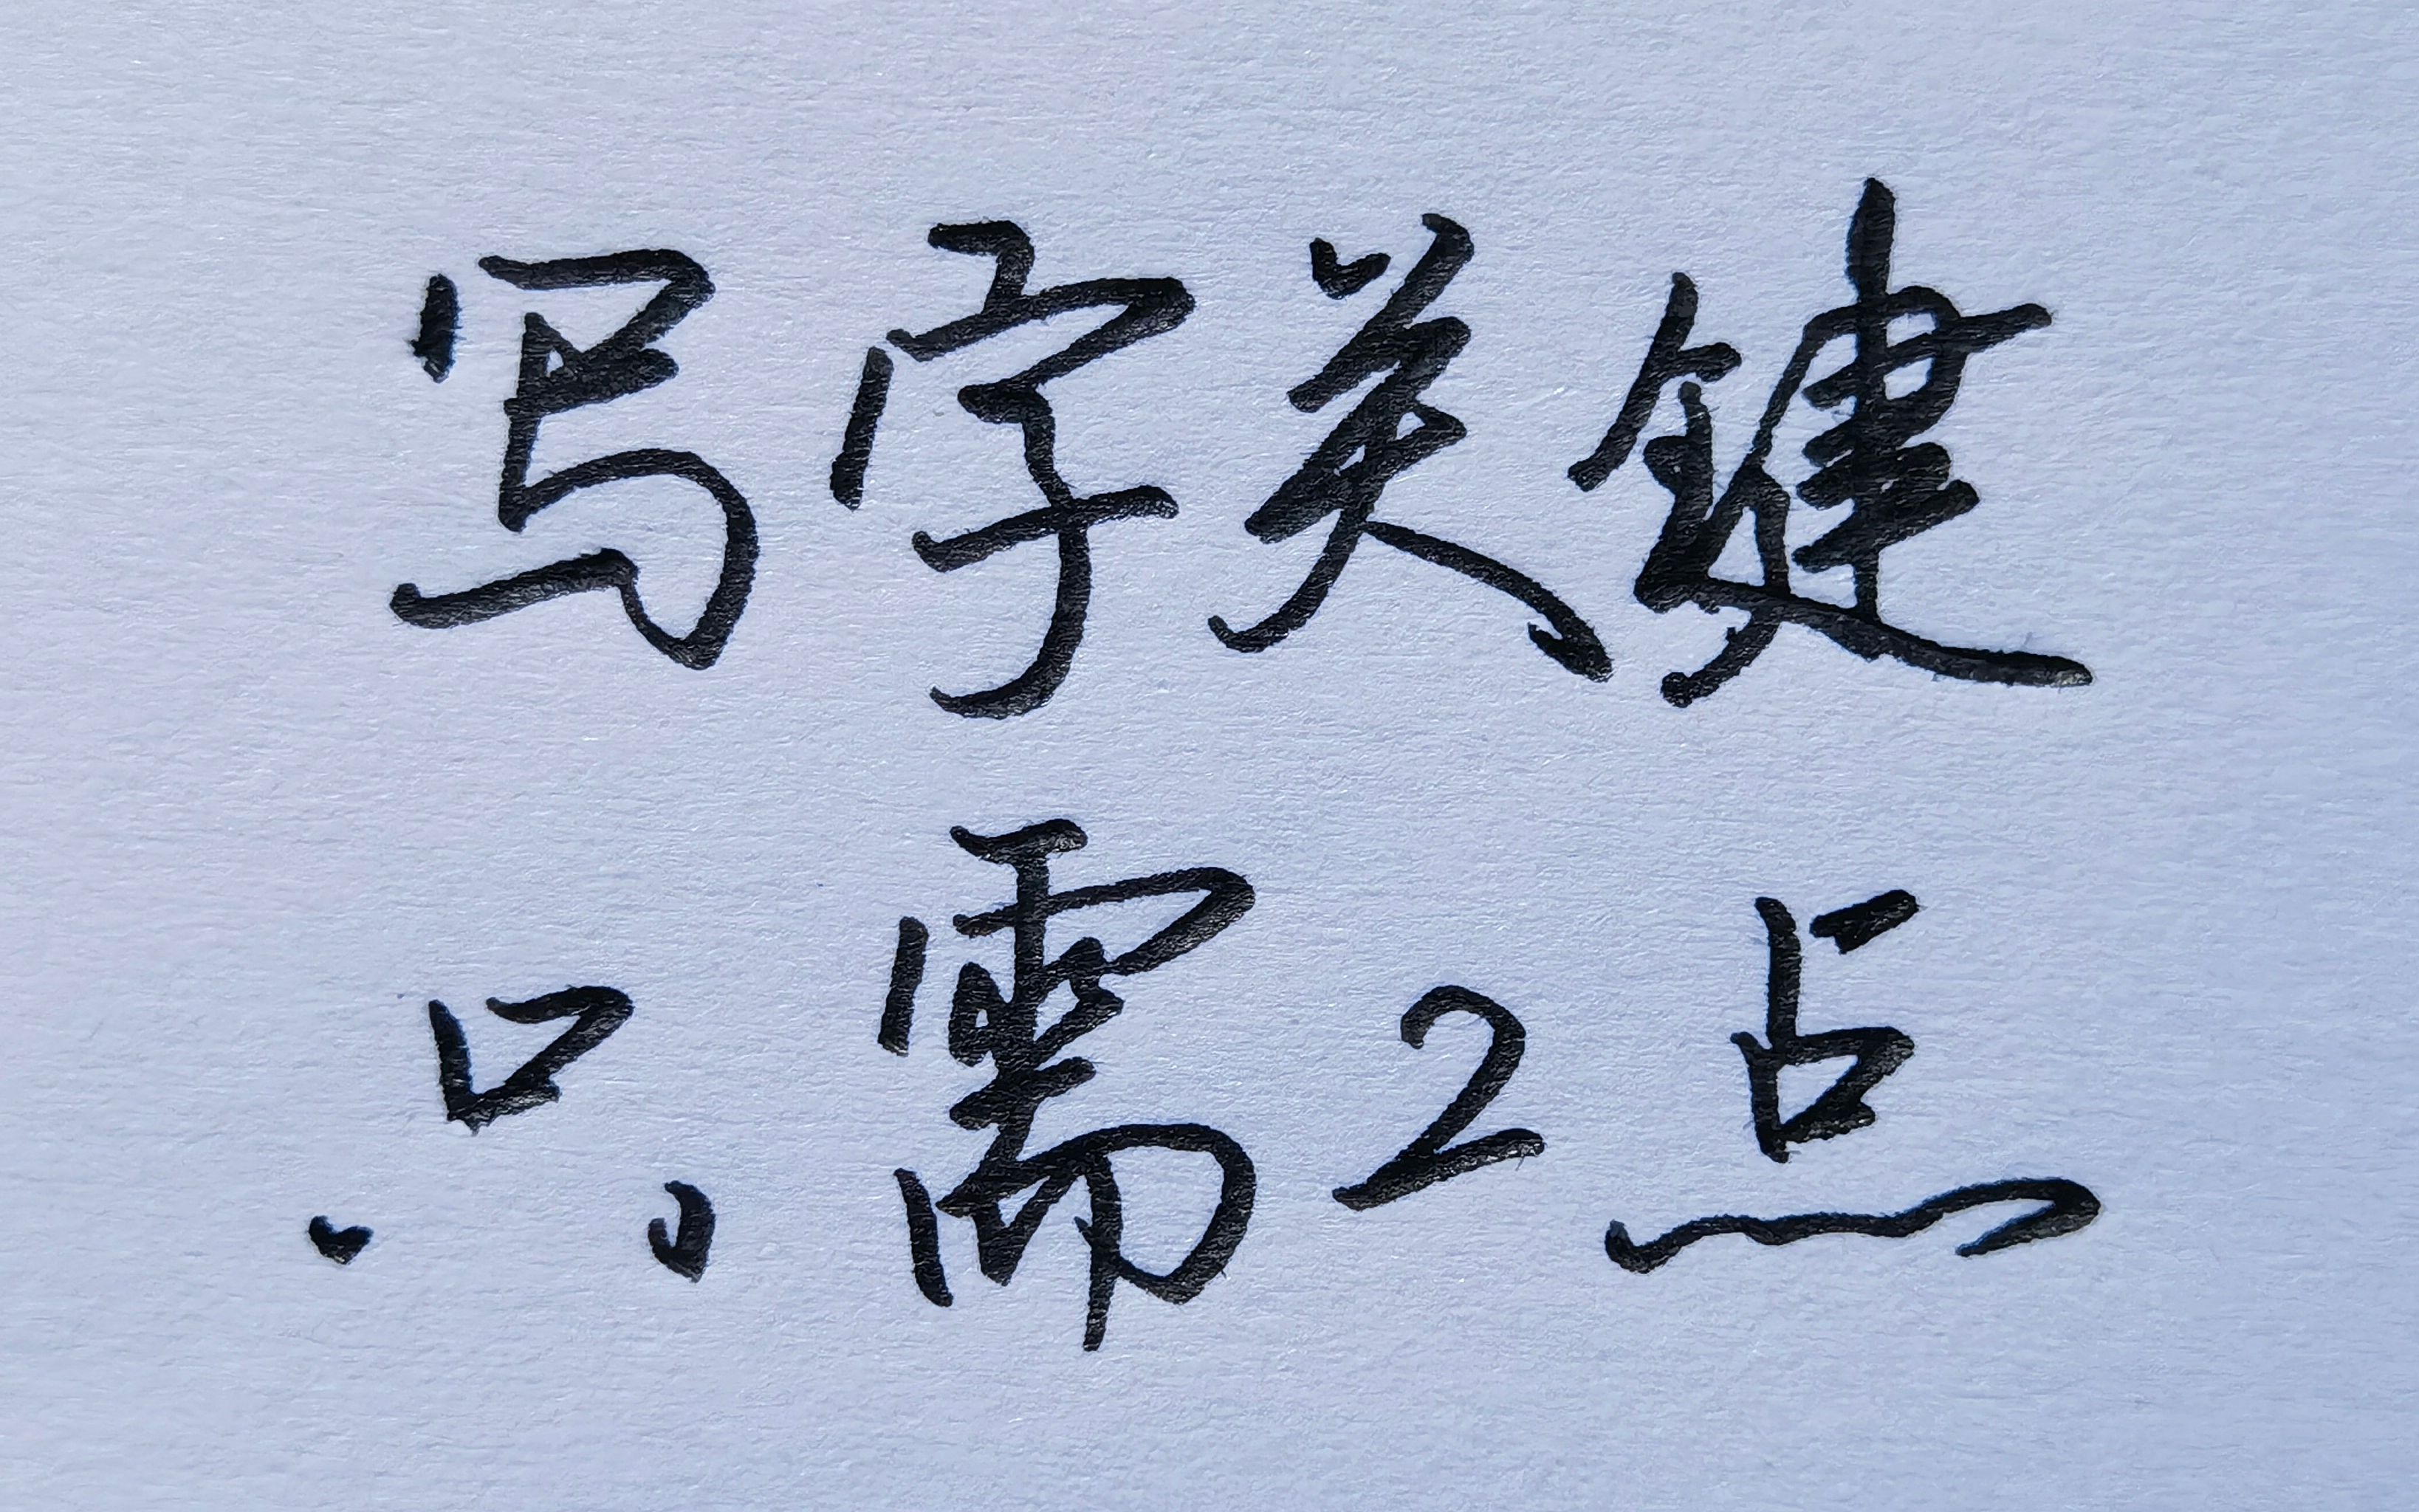 写字关键
只需2点